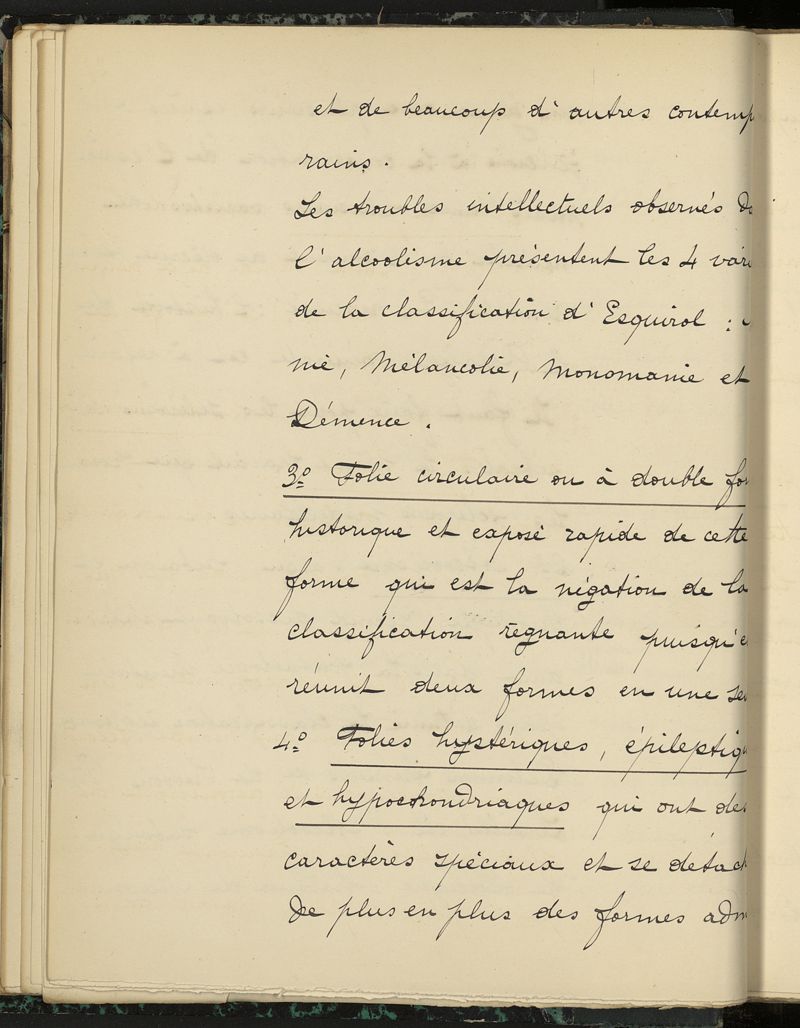 et de beaucoup d'autres contemp
rains.
Les troubles intellectuels observés
l'alcoolisme présentent les 4 vari
de la classification d'Esquirol :
nie, Mélancolie, Monomanie et
Démence.
3º Folie circulaire ou à double for
historique et exposé rapide de cette
forme qui est la négation de la
classification régnante puisqu'e
réunit deux formes en une se
4º Folies hystériques, épileptiq
et hypochondriaques qui ont des
caractères spéciaux et se détach
de plus en plus des formes adm